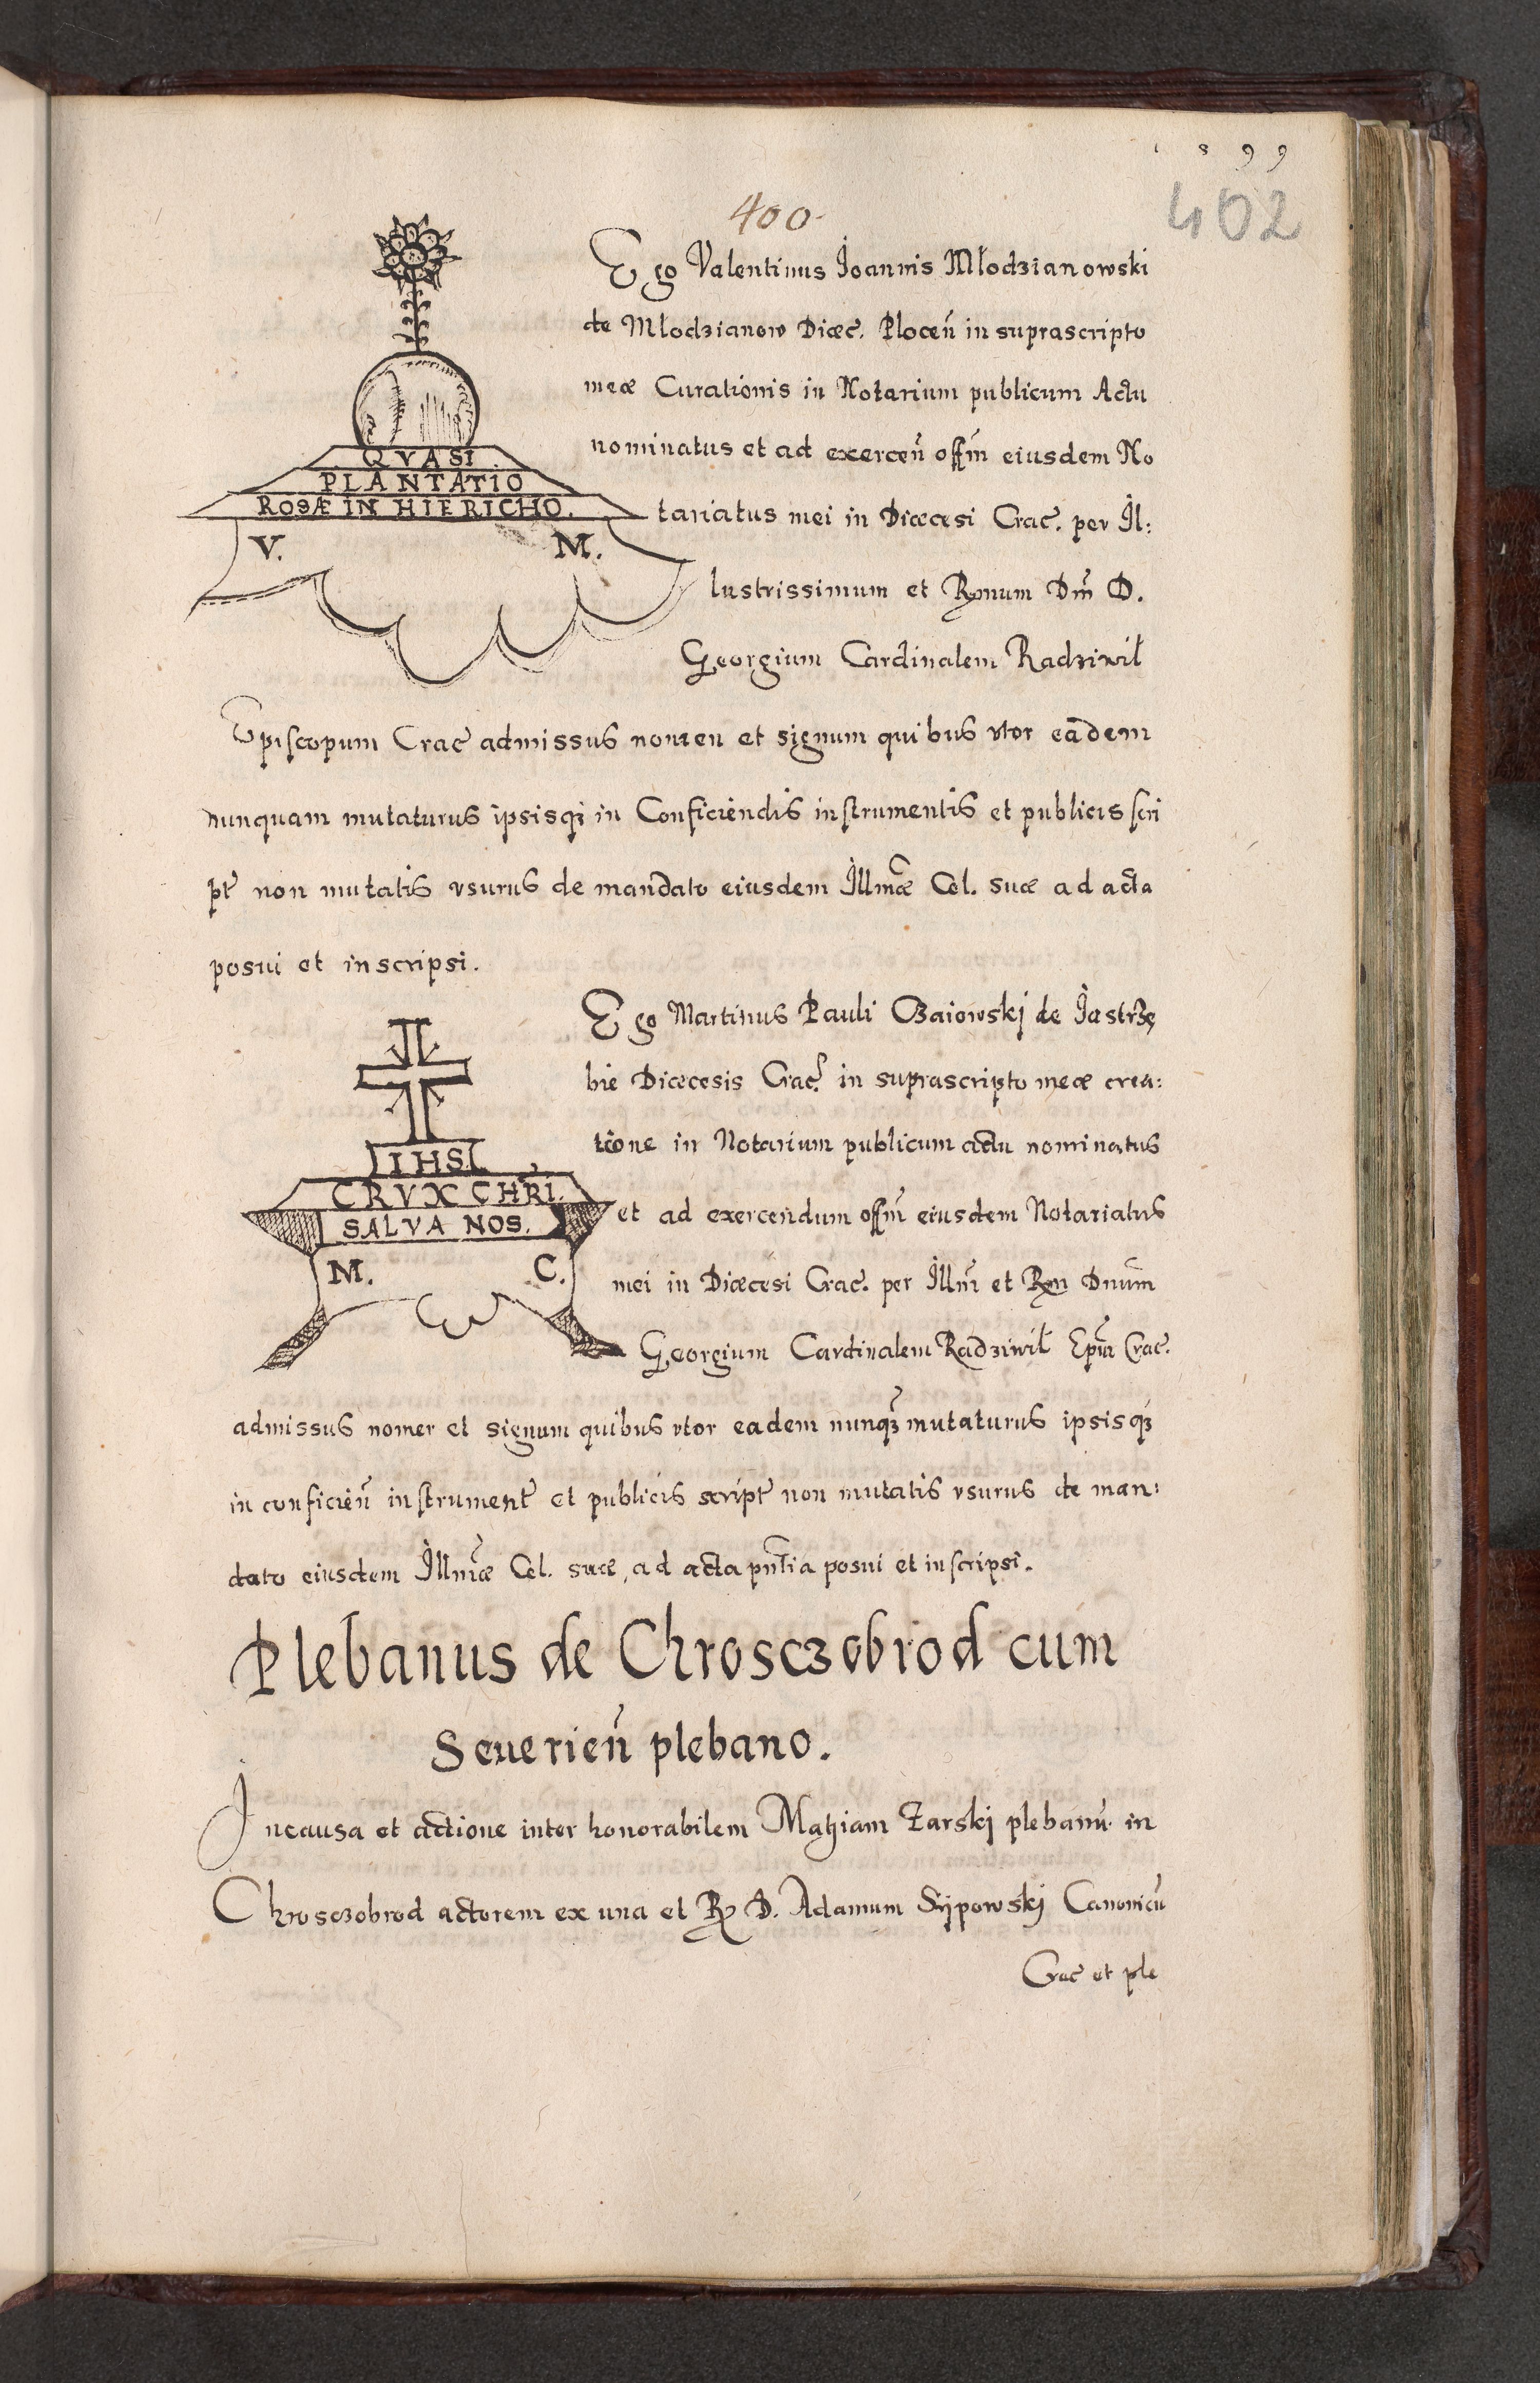 1599
400
402
Ego Valentinus Joannis Młodzianowski
de Młodzianow Diæc. Plocen̄ in suprascripto
meæ Curationis in Notarium publicum Actu
nominatus et ad exercen̄ offm̄ eiusdem No
QVASI
PLANTATIO
ROSÆ IN HIERICHO.
V. M.
tariatus mei in Diæcesi Crac. per Il:
lustrissimum et Rmum Dm̄ D.
Georgium Cardinalem Radziwił
Episcopum Crac admissus nomen et signum quibus vtor eadem
nunquam mutaturus ipsisq; in Conficiendis instrumentis et publicis scri
pt̃ non mutatis vsurus de mandato eiusdem Illmæ Cel. suæ ad acta
posui et inscripsi.
Ego Martinus Pauli Czaiowskj de Jastrzę
bie Diæcesis Crac. in suprascripto meæ crea:
tione in Notarium publicum actu nominatus
IHS.
CRVX CHRI.
SALVA NOS.
M. C.
et ad exercendum offm̄ eiusdem Notariatus
mei in Diæcesi Crac. per Illm̄ et Rm Dnum̄
Georgium Cardinalem Radziwił Epm̄ Crac.
admissus nomen et signum quibus vtor eadem nunq̃ mutaturus ipsisq;
in conficien̄ instrument̃ et publicis script̃ non mutatis vsurus de man:
dato eiusdem Illmæ Cel. suæ, ad acta pn̄tia posui et inscripsi.
Plebanus de Chrosczobrod cum
Seuerien̄ plebano.
In causa et actione inter honorabilem Mathiam Żarskj plebanū in
Chrosczobrod actorem ex una et R. D. Adamum Sijpowskj Canonicū
Crac et ple